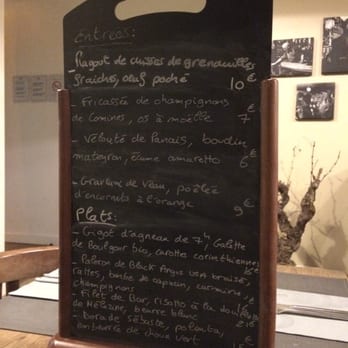 Entrées:
Ragoût de cuisses de grenouilles
fraîches, oeuf poché 10 €
- Fricassée de champignons
de Comines, os à moëlle 7 €
- Velouté de Panais, boudin
, écume amaretto 6 €
- Gravlax de Veau, poêlée
d'encornets à l'orange 9 €
Plats:
- Gigot d'agneau de 7h, Galette
de Boulgour bio, carottes
- Paleron de Black Angus USA braisé,
rattes, barbe de capucin,
champignons
- Filet de Bar, risotto à la
de , beurre blanc
- de sébaste, polenta,
de choux vert